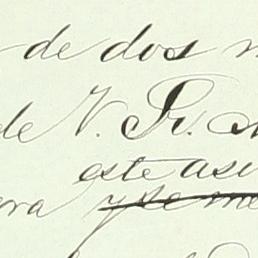 de dos
de V. Sr.
este asu
era y se me